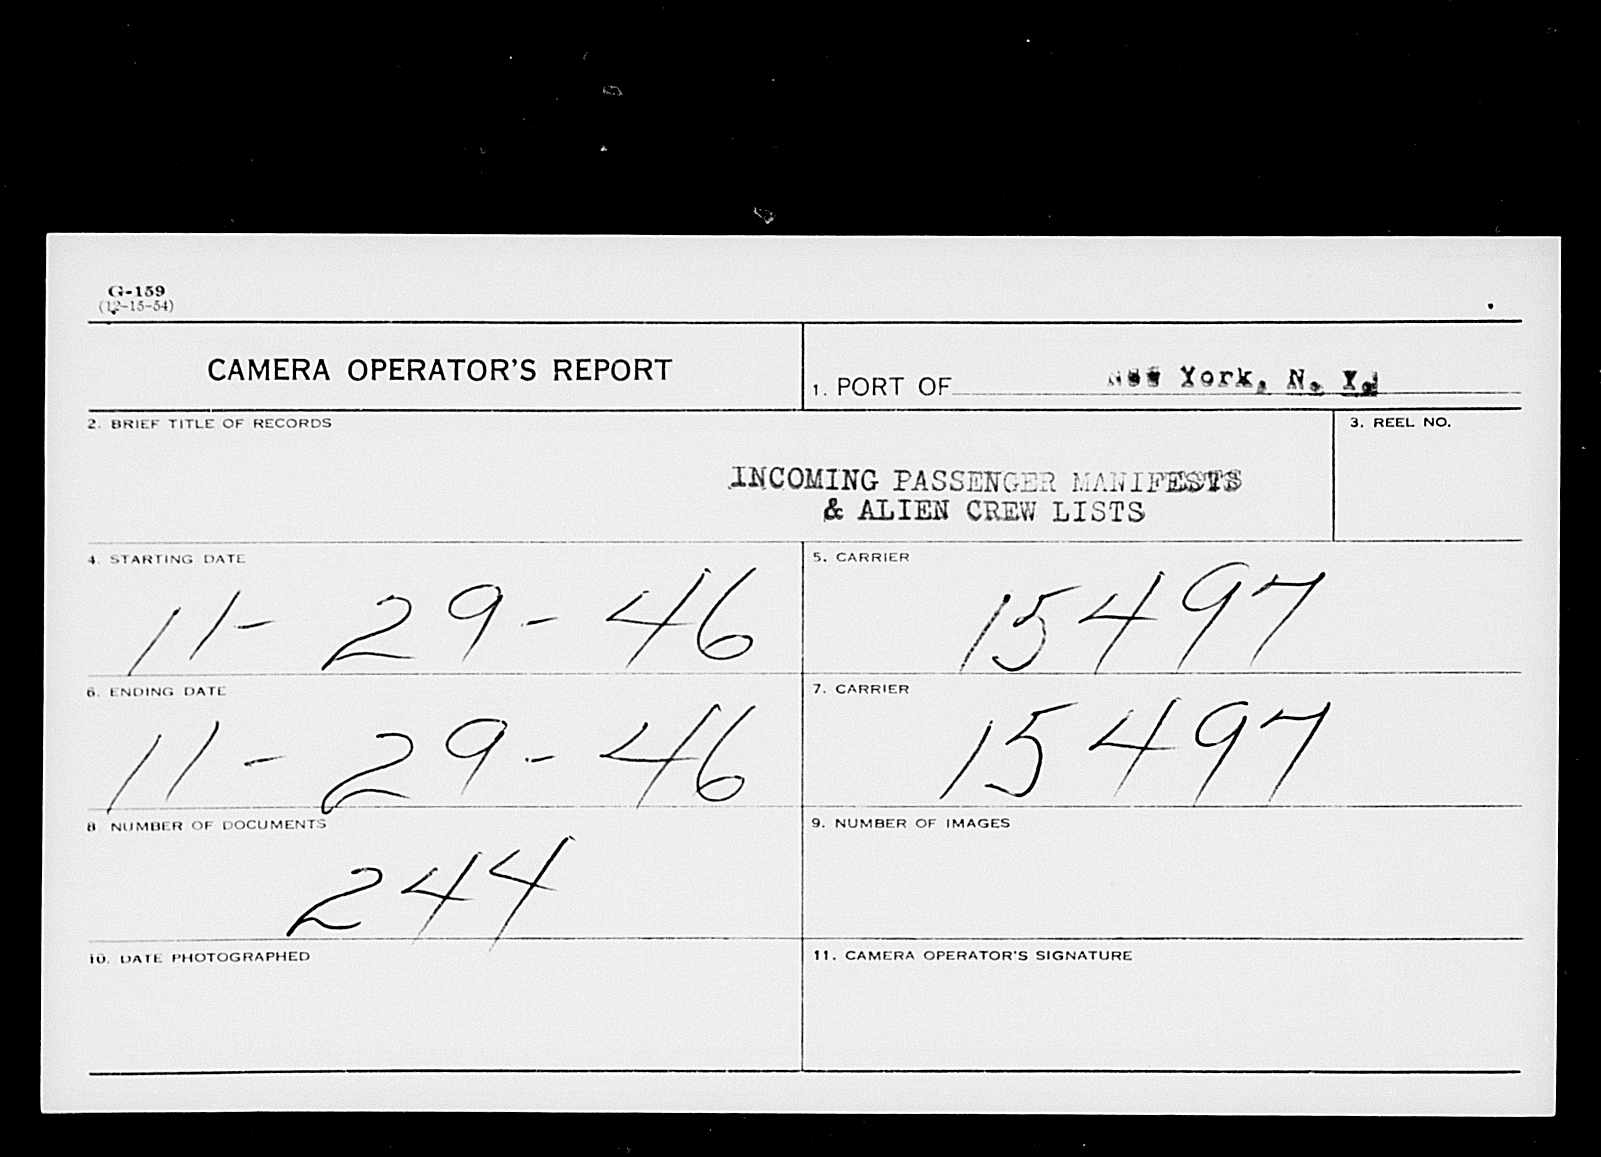 G-159
(12-15-54)
CAMERA OPERATOR'S REPORT
1. PORT OF New York, N. Y.
2. BRIEF TITLE OF RECORDS
3. REEL NO.
INCOMING PASSENGER MANIFESTS
& ALIEN CREW LISTS
4. STARTING DATE
5. CARRIER
11-29-46
15497
6. ENDING DATE
7. CARRIER
11-29-46
15497
8 NUMBER OF DOCUMENTS
9. NUMBER OF IMAGES
244
10. DATE PHOTOGRAPHED
11. CAMERA OPERATOR'S SIGNATURE